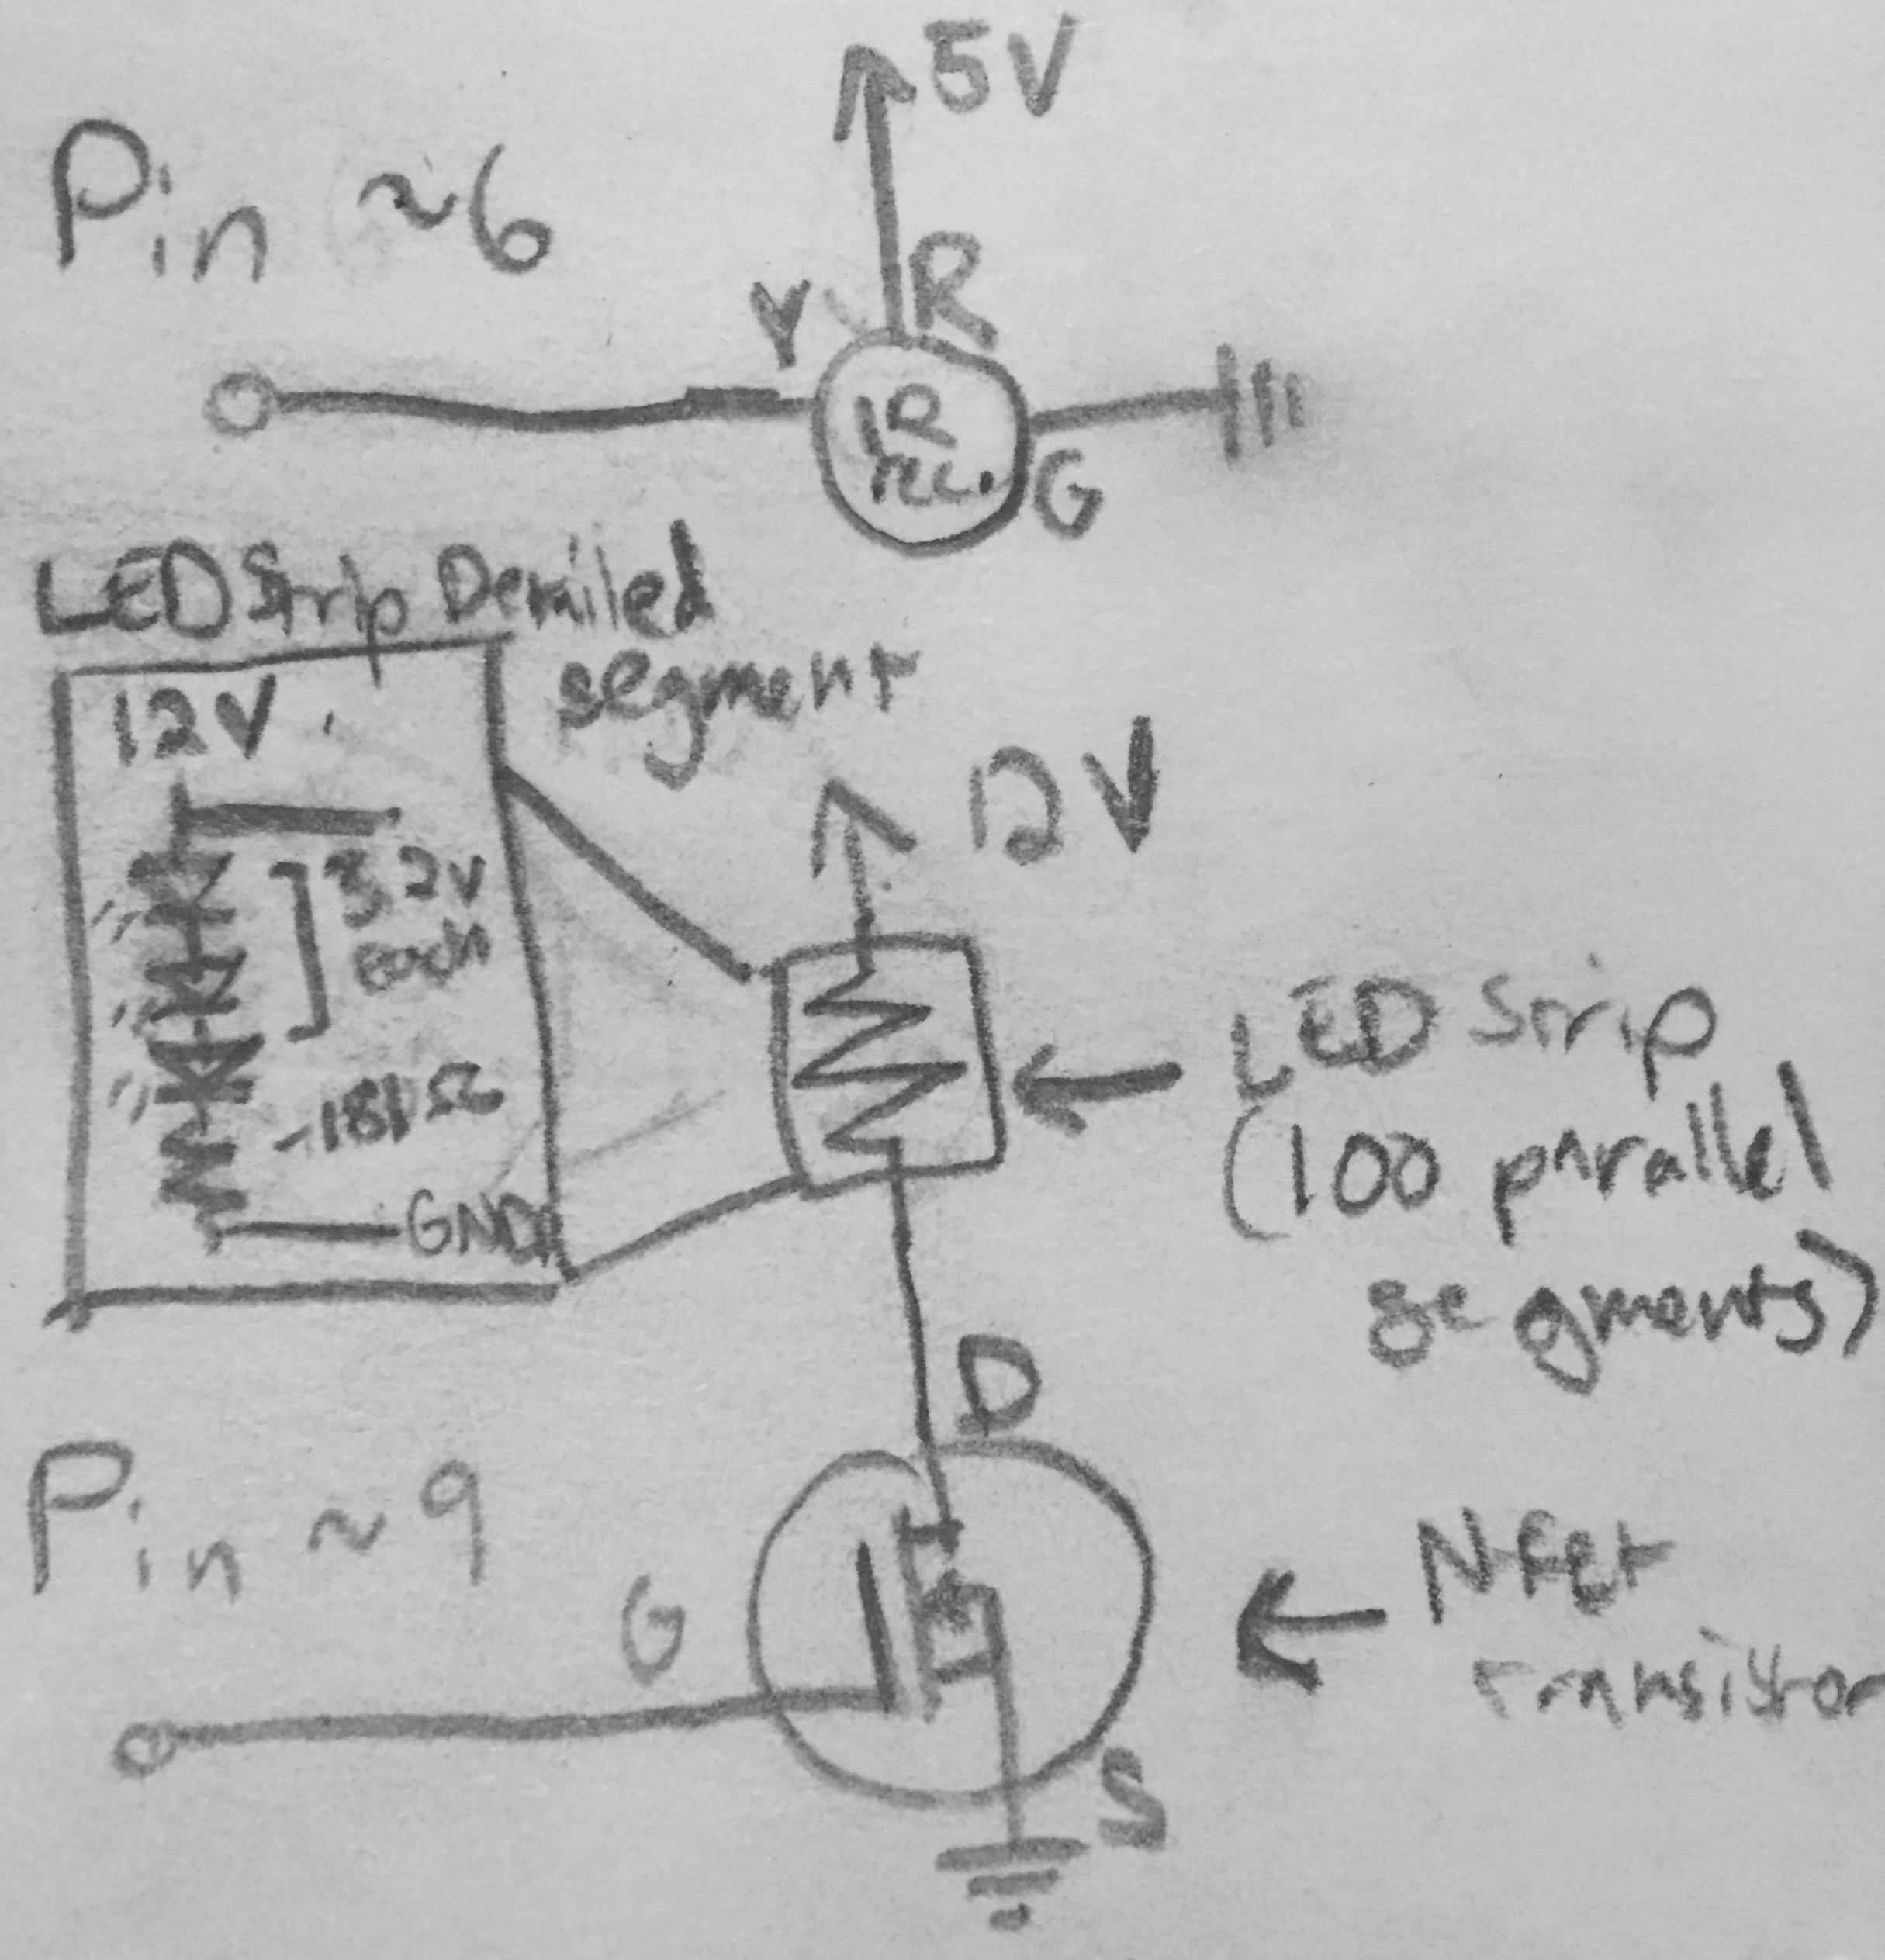 5V
Pin ~6
R
Y
IR
rec.
G
LED Strip Detailed
segment
12V
12V
3.2V
each
LED Strip
(100 parallel
segments)
GND
D
Pin ~9
G
Nfet
transistor
S